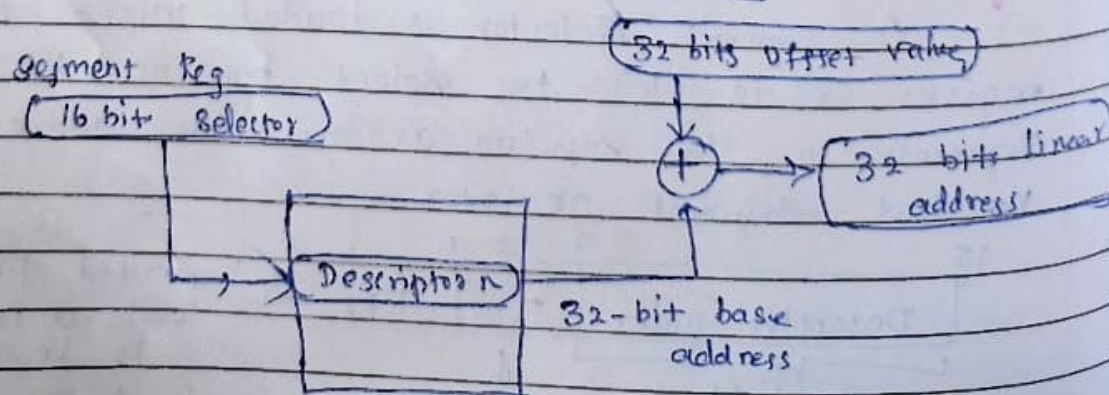 32 bits offset value
segment Reg
16 bit selector
32 bits linear
address
Descriptor n
32-bit base
address